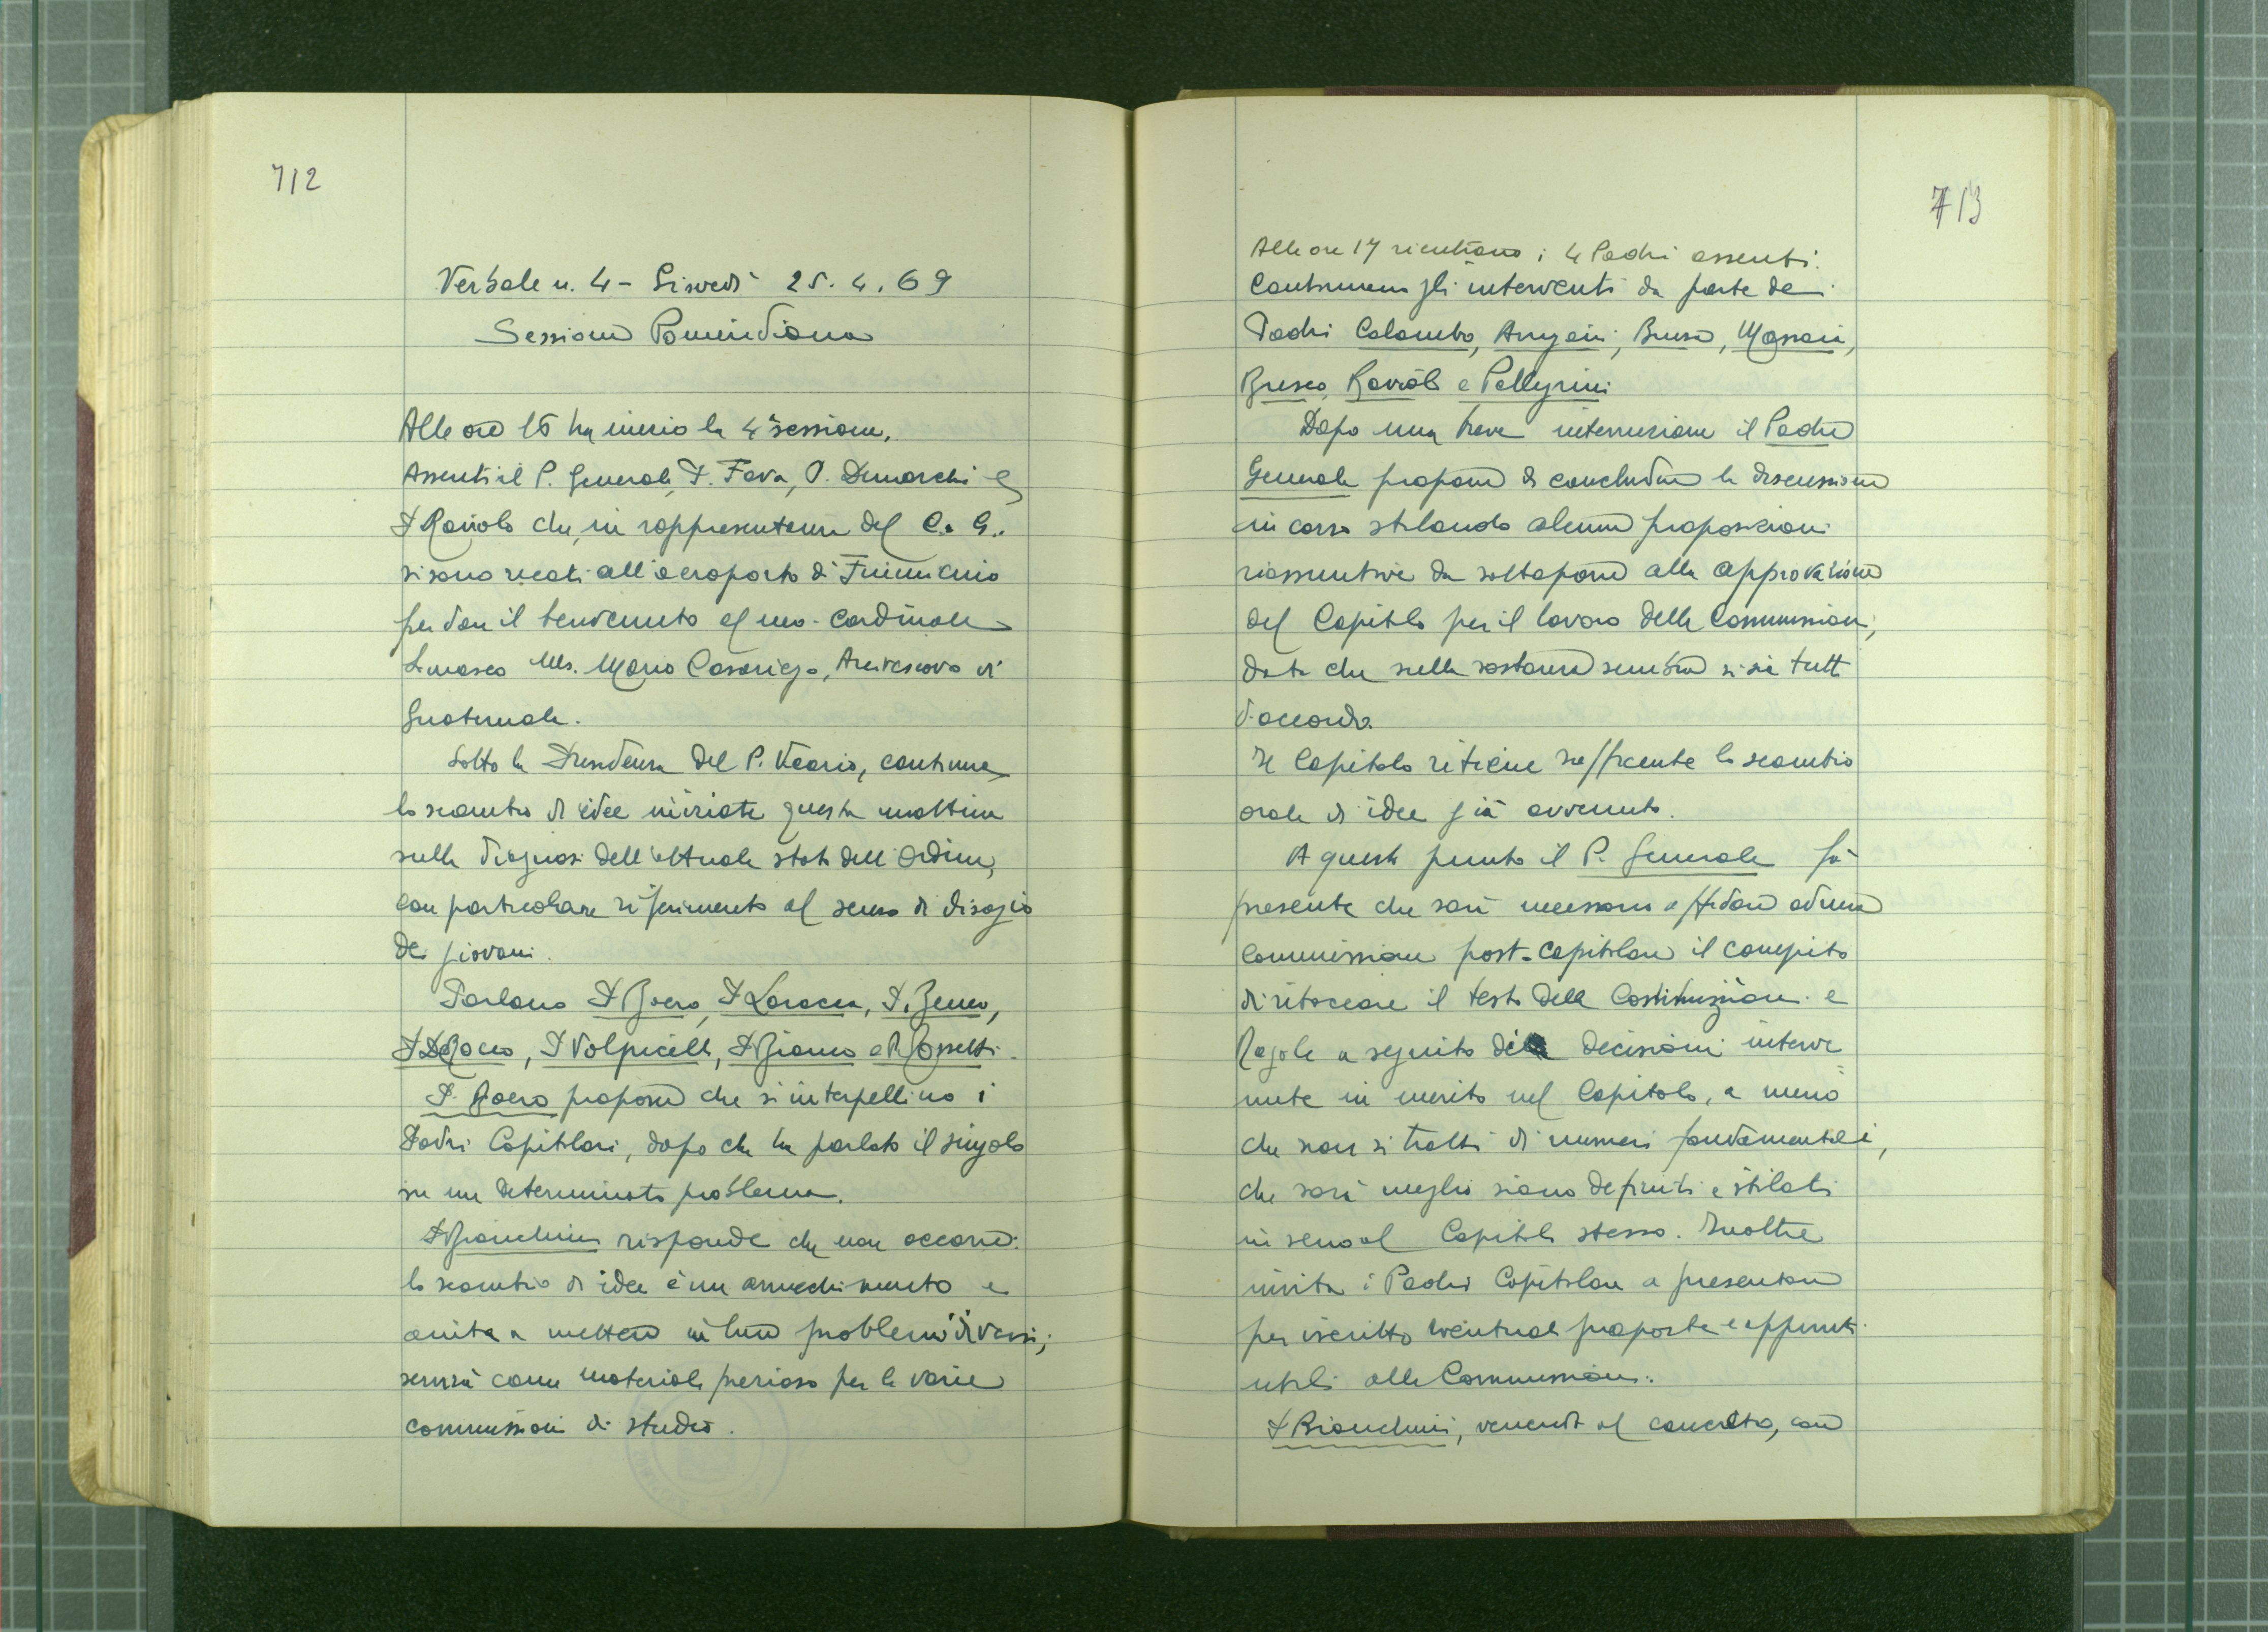 712
Verbale n. 4 - Giovedì 25.4.69
Sessione Pomeridiana
Alle ore 15 ha inizio la 4ª sessione.
Assenti il P. Generale, P. Fava, P. Demarchi e
P. Raviolo che, in rappresentanza del C. G.
si sono recati all'aeroporto di Fiumicino
per dare il benvenuto al neo-Cardinale
Somasco Ms. Mario Casariego, Arcivescovo di
Guatemala.
Sotto la Presidenza del P. Vicario, continua
lo scambio di idee iniziate questa mattina
sulla diagnosi dell'attuale stato dell'Ordine,
con particolare riferimento al senso di disagio
dei giovani.
Parlano P. Boero, P. Laracca, P. Zeno,
P. De Rocco, P. Volpicelli, P. Bianco e P. Rossetti.
P. Boero propone che si interpellino i
Padri Capitolari, dopo che ha parlato il singolo
su un determinato problema.
P. Bianchini risponde che non occorre:
lo scambio di idee è un arricchimento e
aiuta a mettere in luce problemi diversi;
servirà come materiale prezioso per le varie
commissioni di studio.
713
Alle ore 17 rientrano i 4 Padri assenti.
Continuano gli interventi da parte dei
Padri Colombo, Arrigoni, Busco, Massaia,
Bresco, Raviolo e Pellegrini
Dopo una breve interruzione il Padre
Generale propone di concludere la discussione
in corso stilando alcune proposizioni
riassuntive da sottoporre alla approvazione
del Capitolo per il lavoro delle Commissioni,
dato che nella sostanza sembra si sia tutti
d'accordo.
Il Capitolo ritiene sufficiente lo scambio
orale di idee già avvenuto.
A questo punto il P. Generale fà
presente che sarà necessario affidare ad una
Commissione post-capitolare il compito
di ritoccare il testo delle Costituzioni e
Regole a seguito delle decisioni interve
nute in merito nel Capitolo, a meno
che non si tratti di numeri fondamentali,
che sarà meglio siano definiti e stilati
in seno al Capitolo stesso. Inoltre
invita i Padri Capitolari a presentare
per iscritto eventuali proposte e appunti
utili alle Commissioni.
P. Bianchini, venendo al concreto, con